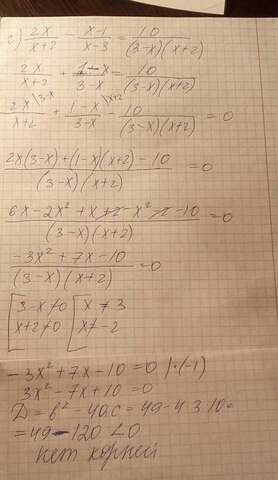 c) 2x/(x+2) - (x-1)/(x-3) = 10/((3-x)(x+2))
2x/(x+2) + (1-x)/(3-x) = 10/((3-x)(x+2))
2x\3-x/(x+2) + (1-x)\x+2/(3-x) - 10/((3-x)(x+2)) = 0
(2x(3-x)+(1-x)(x+2)-10)/((3-x)(x+2)) = 0
(6x-2x²+x+2-x²-2-10)/((3-x)(x+2)) = 0
(-3x²+7x-10)/((3-x)(x+2)) = 0
[3-x≠0 [x≠3
[x+2≠0 [x≠-2
-3x²+7x-10=0 |·(-1)
3x²-7x+10=0
D=b²-4ac=49-4·3·10=
=49-120<0
нет корней